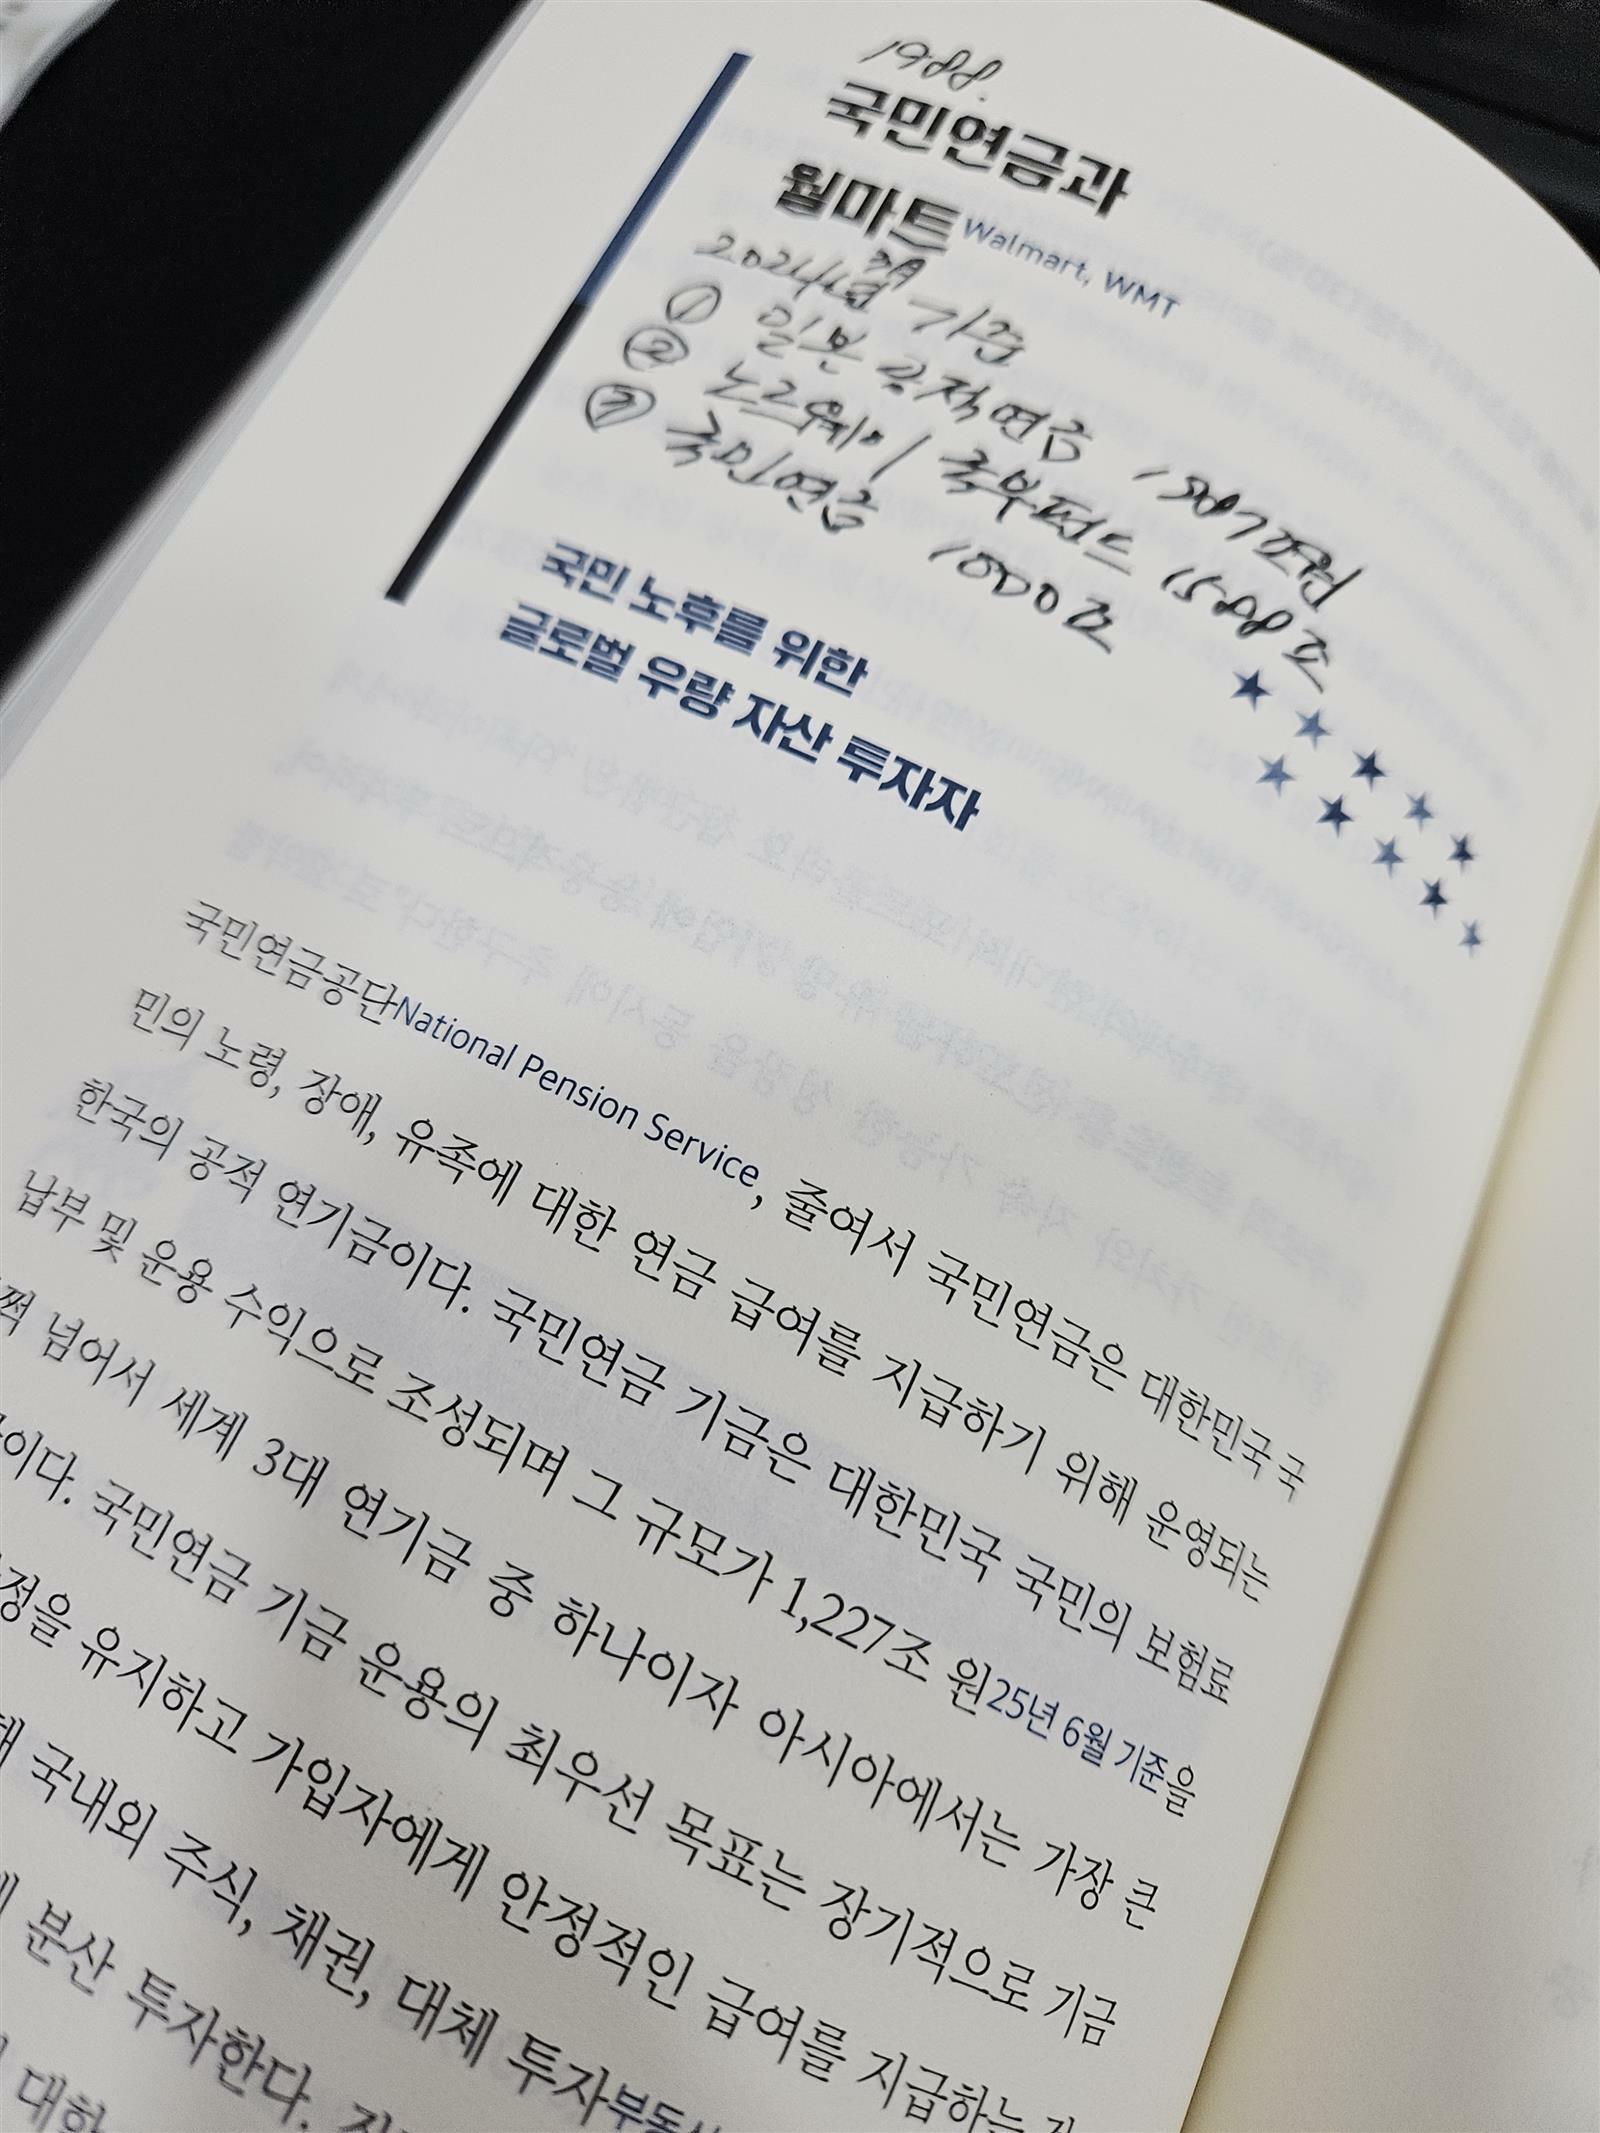 1988.
국민연금과
월마트 Walmart, WMT
2024년 기준
① 일본 공적연금 1987조원
② 노르웨이 국부펀드 1588조
③ 국민연금 1000조
국민 노후를 위한
글로벌 우량 자산 투자자
국민연금공단National Pension Service, 줄여서 국민연금은 대한민국 국
민의 노령, 장애, 유족에 대한 연금 급여를 지급하기 위해 운영되는
한국의 공적 연기금이다. 국민연금 기금은 대한민국 국민의 보험료
납부 및 운용 수익으로 조성되며 그 규모가 1,227조 원25년 6월 기준을
쩍 넘어서 세계 3대 연기금 중 하나이자 아시아에서는 가장 큰
이다. 국민연금 기금 운용의 최우선 목표는 장기적으로 기금
정을 유지하고 가입자에게 안정적인 급여를 지급하는
국내외 주식, 채권, 대체 투자부동
분산 투자한다.
대한